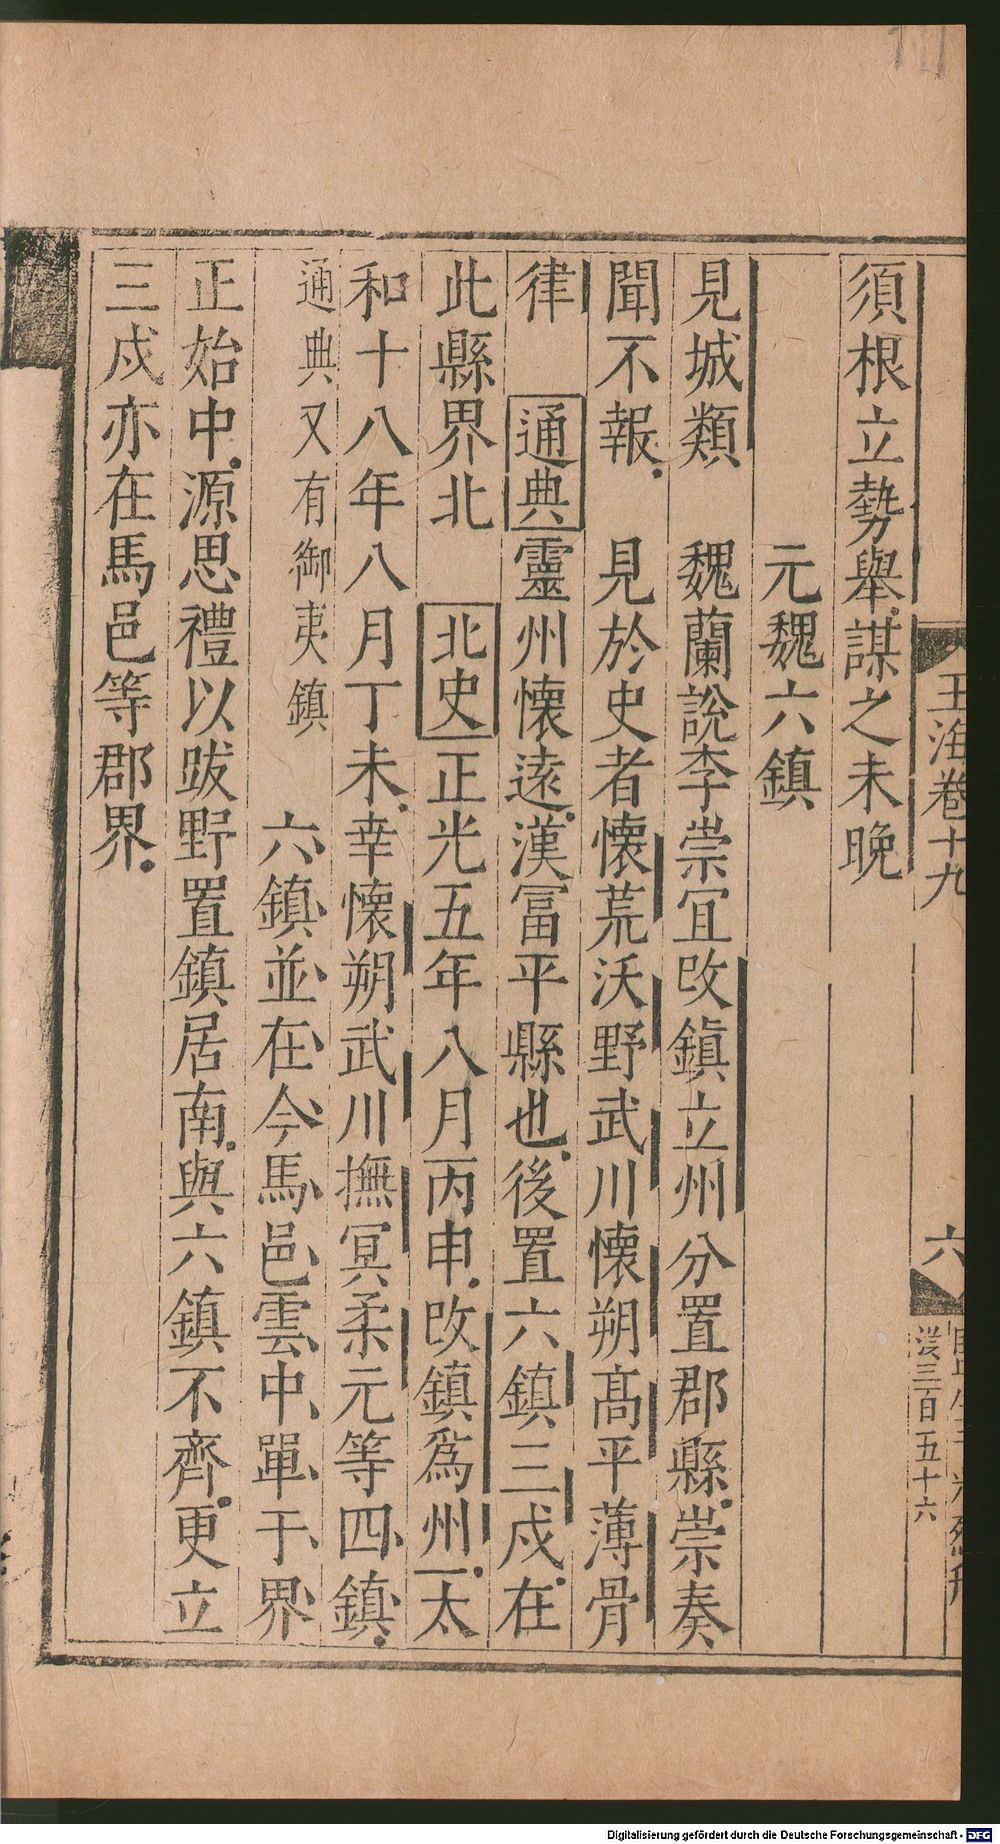 須根立勢舉謀之未晚
元魏六鎮
見城類 魏蘭說李崇宜改鎮立州分置郡縣崇奏
聞不報 見於史者懷荒沃野武川懷朔高平薄骨
律 通典靈州懷遠漢富平縣也後置六鎮三戍在
此縣界北 北史正光五年八月丙申改鎮爲州太
和十八年八月丁未幸懷朔武川撫冥柔元等四鎮
通典又有御夷鎮 六鎮並在今馬邑雲中單于界
正始中源思禮以跋野置鎮居南與六鎮不齊更立
三戍亦在馬邑等郡界
玉海卷十九
六
三百五十六
Digitalisierung gefördert durch die Deutsche Forschungsgemeinschaft - DFG